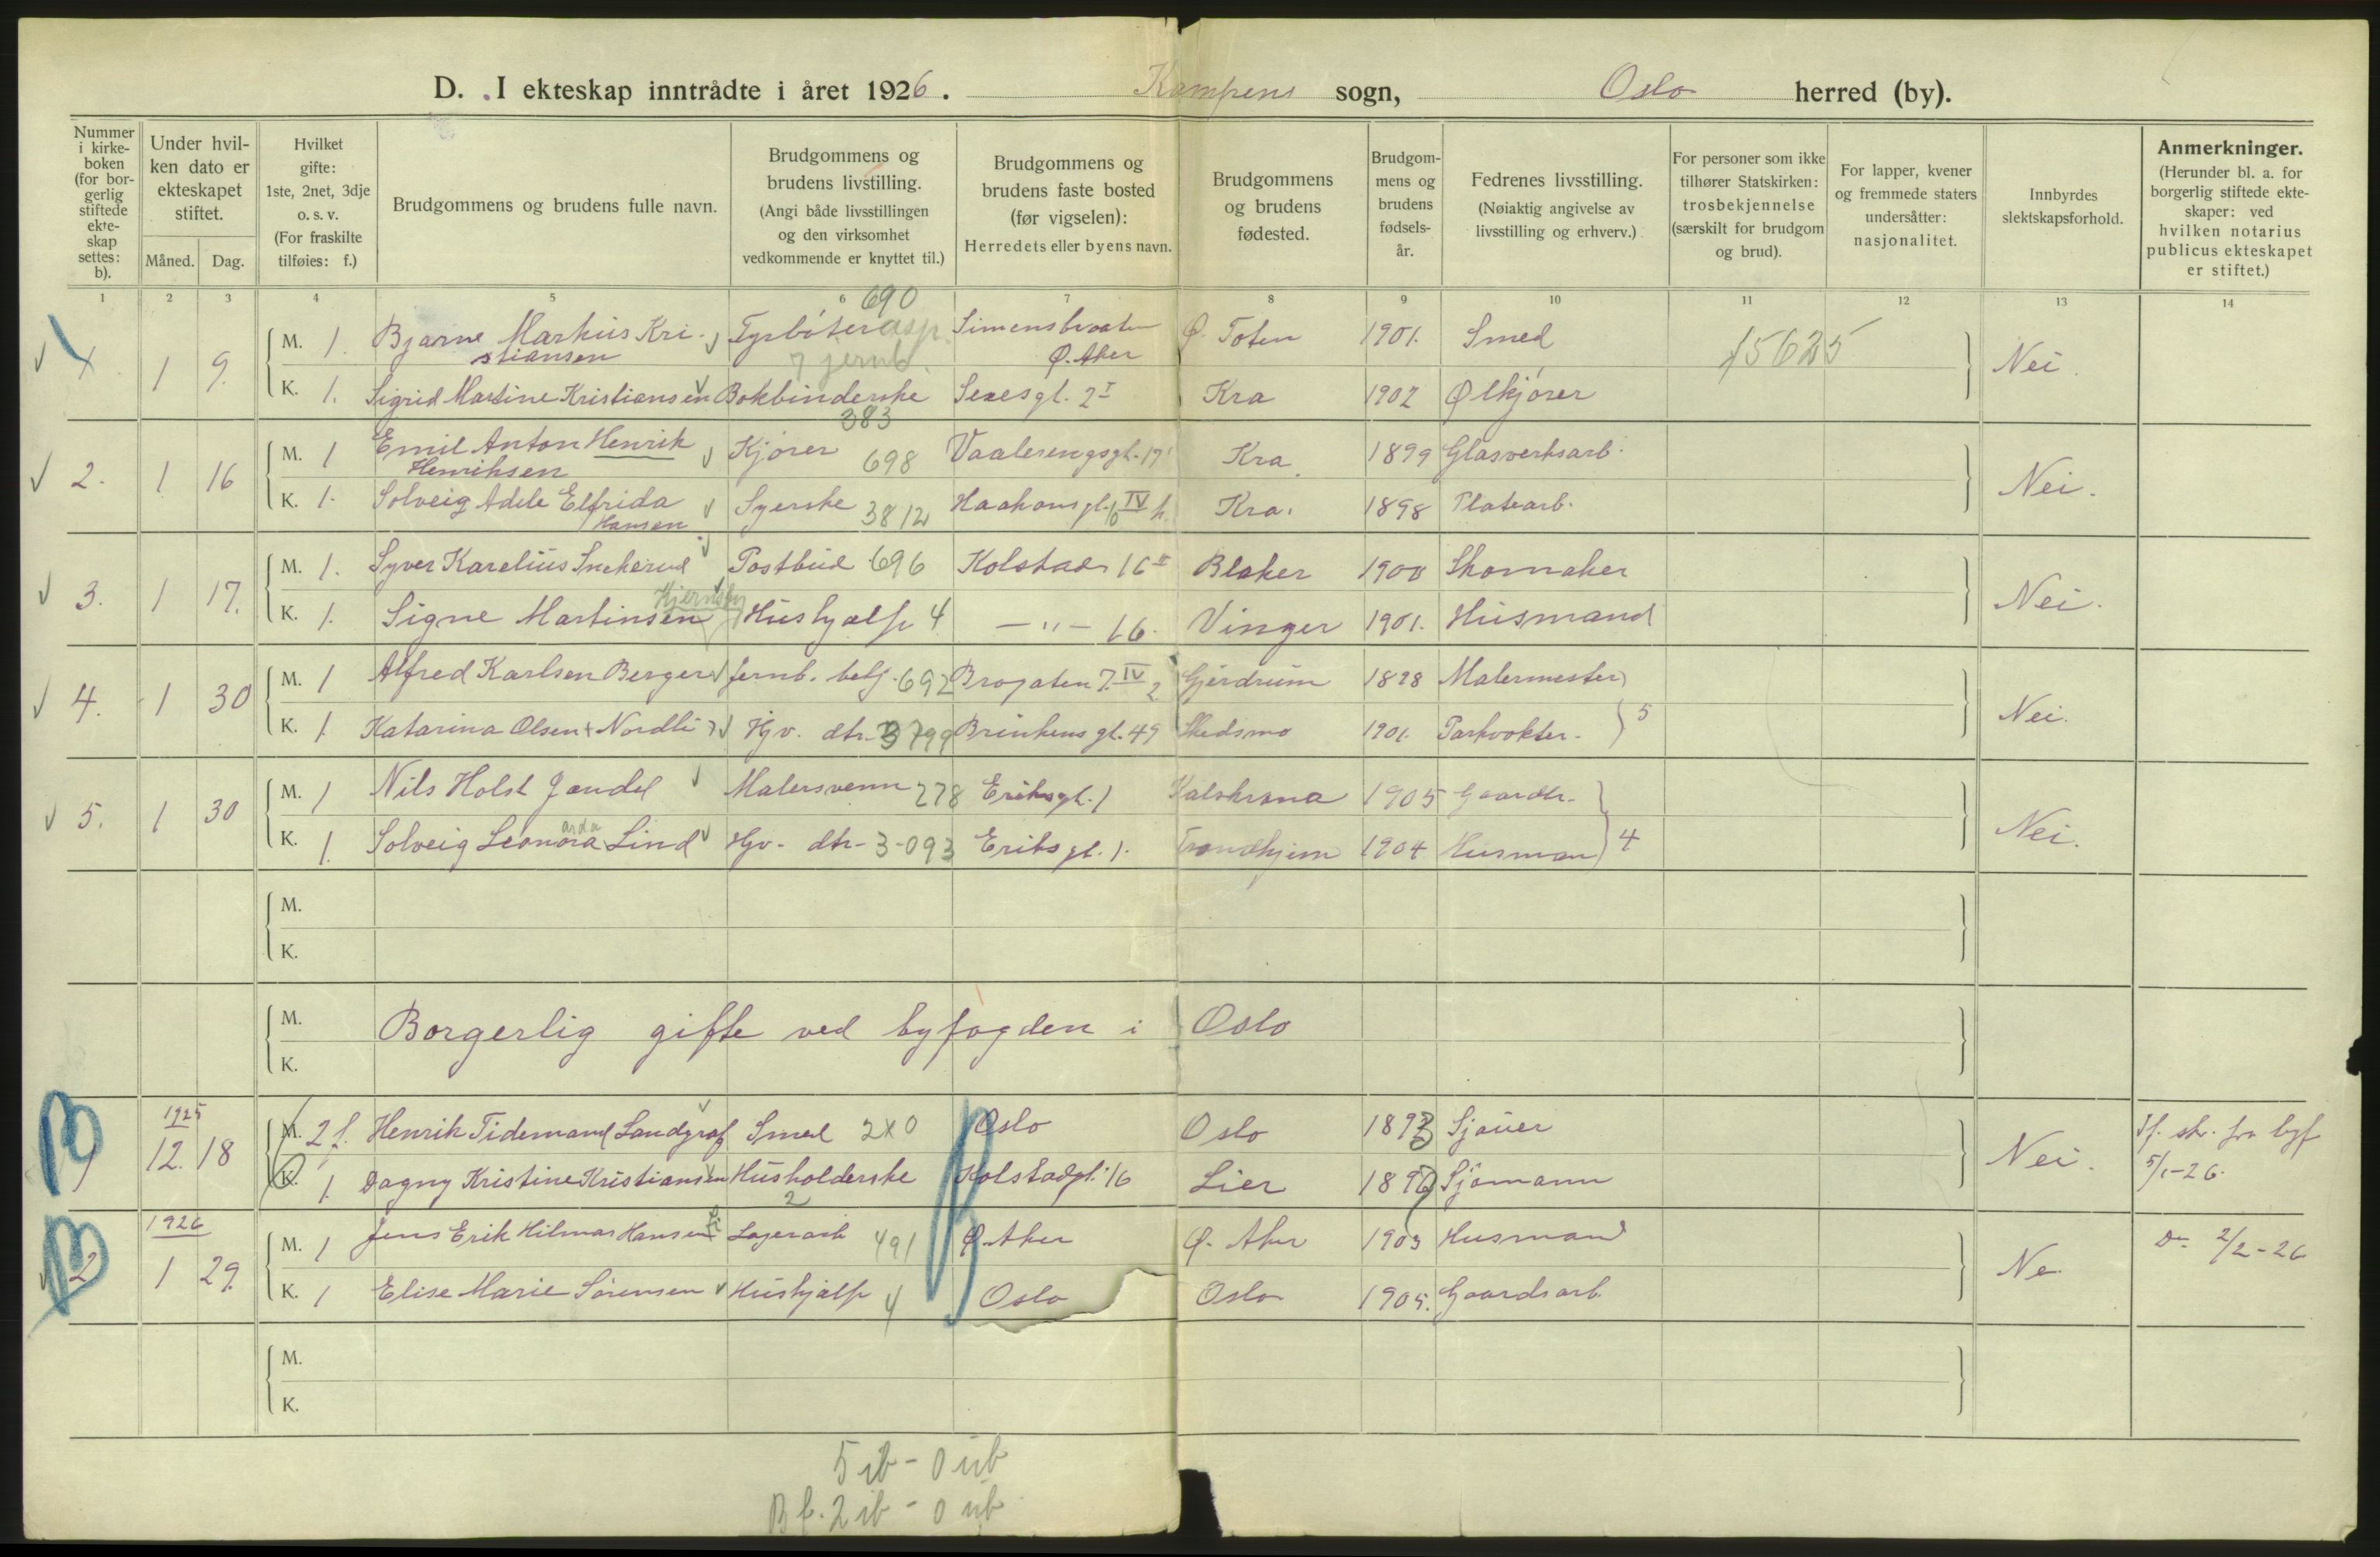 D. I ekteskap inntrådte i året 1926. Kampens sogn, Oslo herred (by).
Nummer i kirke-boken (for bor-gerlig stiftede ekte-skap settes: b).
Under hvil-ken dato er ekteskapet stiftet.
Måned. Dag.
Hvilket gifte: 1ste, 2net, 3dje o. s. v. (For fraskilte tilføies: f.)
Brudgommens og brudens fulle navn.
Brudgommens og brudens livstilling. (Angi både livsstillingen og den virksomhet vedkommende er knyttet til.)
Brudgommens og brudens faste bosted (før vigselen): Herredets eller byens navn.
Brudgommens og brudens fødested.
Brudgom-mens og brudens fødsels-år.
Fedrenes livsstilling. (Nøiaktig angivelse av livsstilling og erhverv.)
For personer som ikke tilhører Statskirken: trosbekjennelse (særskilt for brudgom og brud).
For lapper, kvener og fremmede staters undersåtter: nasjonalitet.
Innbyrdes slektskapsforhold.
Anmerkninger. (Herunder bl. a. for borgerlig stiftede ekte-skaper: ved hvilken notarius publicus ekteskapet er stiftet.)
1 2 3 4 5 6 7 8 9 10 11 12 13 14
690
1 1 9. M. 1. Bjarne Markus Kri-stiansen Simensbraaten Ø. Aker Ø. Toten 1901. Smed 15625 Nei.
7 jernb.
K. 1. Sigrid Martine Kristiansen Bokbinderske Sexesgt. 2 I Kra 1902 Ølkjører
383
2. 1 16 M. 1 Emil Anton Henrik Henriksen Kjører 698 Vaalerengsgt. 17 Kra 1899 Glasverksarb. Nei.
K. 1. Solveig Adele Elfrida Hansen Syerske 3812 Haakonsgt. 10 IV Kra. 1898 Platearb.
3. 1 17. M. 1. Syver Karelius Snekerud Postbud 696 Kolstad 16 II Blaker 1900 Skomaker Nei.
K. 1. Signe Martinsen Hushjælp 4 — " — 16. Vinger 1901. Husmand
4. 1 30 M. 1 Alfred Karlsen Berger Jernb. betj. 692 Brogaten 7. IV Gjerdrum 1898 Malermester Nei.
K. 1. Katarina Olsen Nordli Hjv. dtr. 3799 Brinkens gt. 49 Skedsmo 1901. Parkvokter. 5
5. 1 30 M. 1 Nils Holst Jandel Malersvenn 278 Eriksgt. 1 1905 Gaardbr. Nei.
arda
K. 1. Solveig Leonora Lind Hjv. dtr. 3-093 Eriksgt. 1. Trondhjem 1904 Husman 4
M.
K.
M. Borgerlig gifte ved byfogden i Oslo
K.
1925
1 12. 18 M. 2 f. Henrik Tidemand Landgraf Smed 2X0 Oslo Oslo 1893 Sjauer Nei. If. skr. fra byf
K. 1. Dagny Kristine Kristiansen Husholderske 2 Kolstadgt. 16 Lier 1897 Sjømann 5/1-26.
1926
2 1 29. M. 1 Jens Erik Hilmar Hansen Lagerarb 491 Ø. Aker Ø. Aker 1903 Husmand Ne Do 2/2-26
K. 1 Elise Marie Sørensen Hushjælp 4 Oslo Oslo 1905. Gaardsarb.
M.
K.
5 ib - 0 ub
Bf. 2 ib - 0 ub